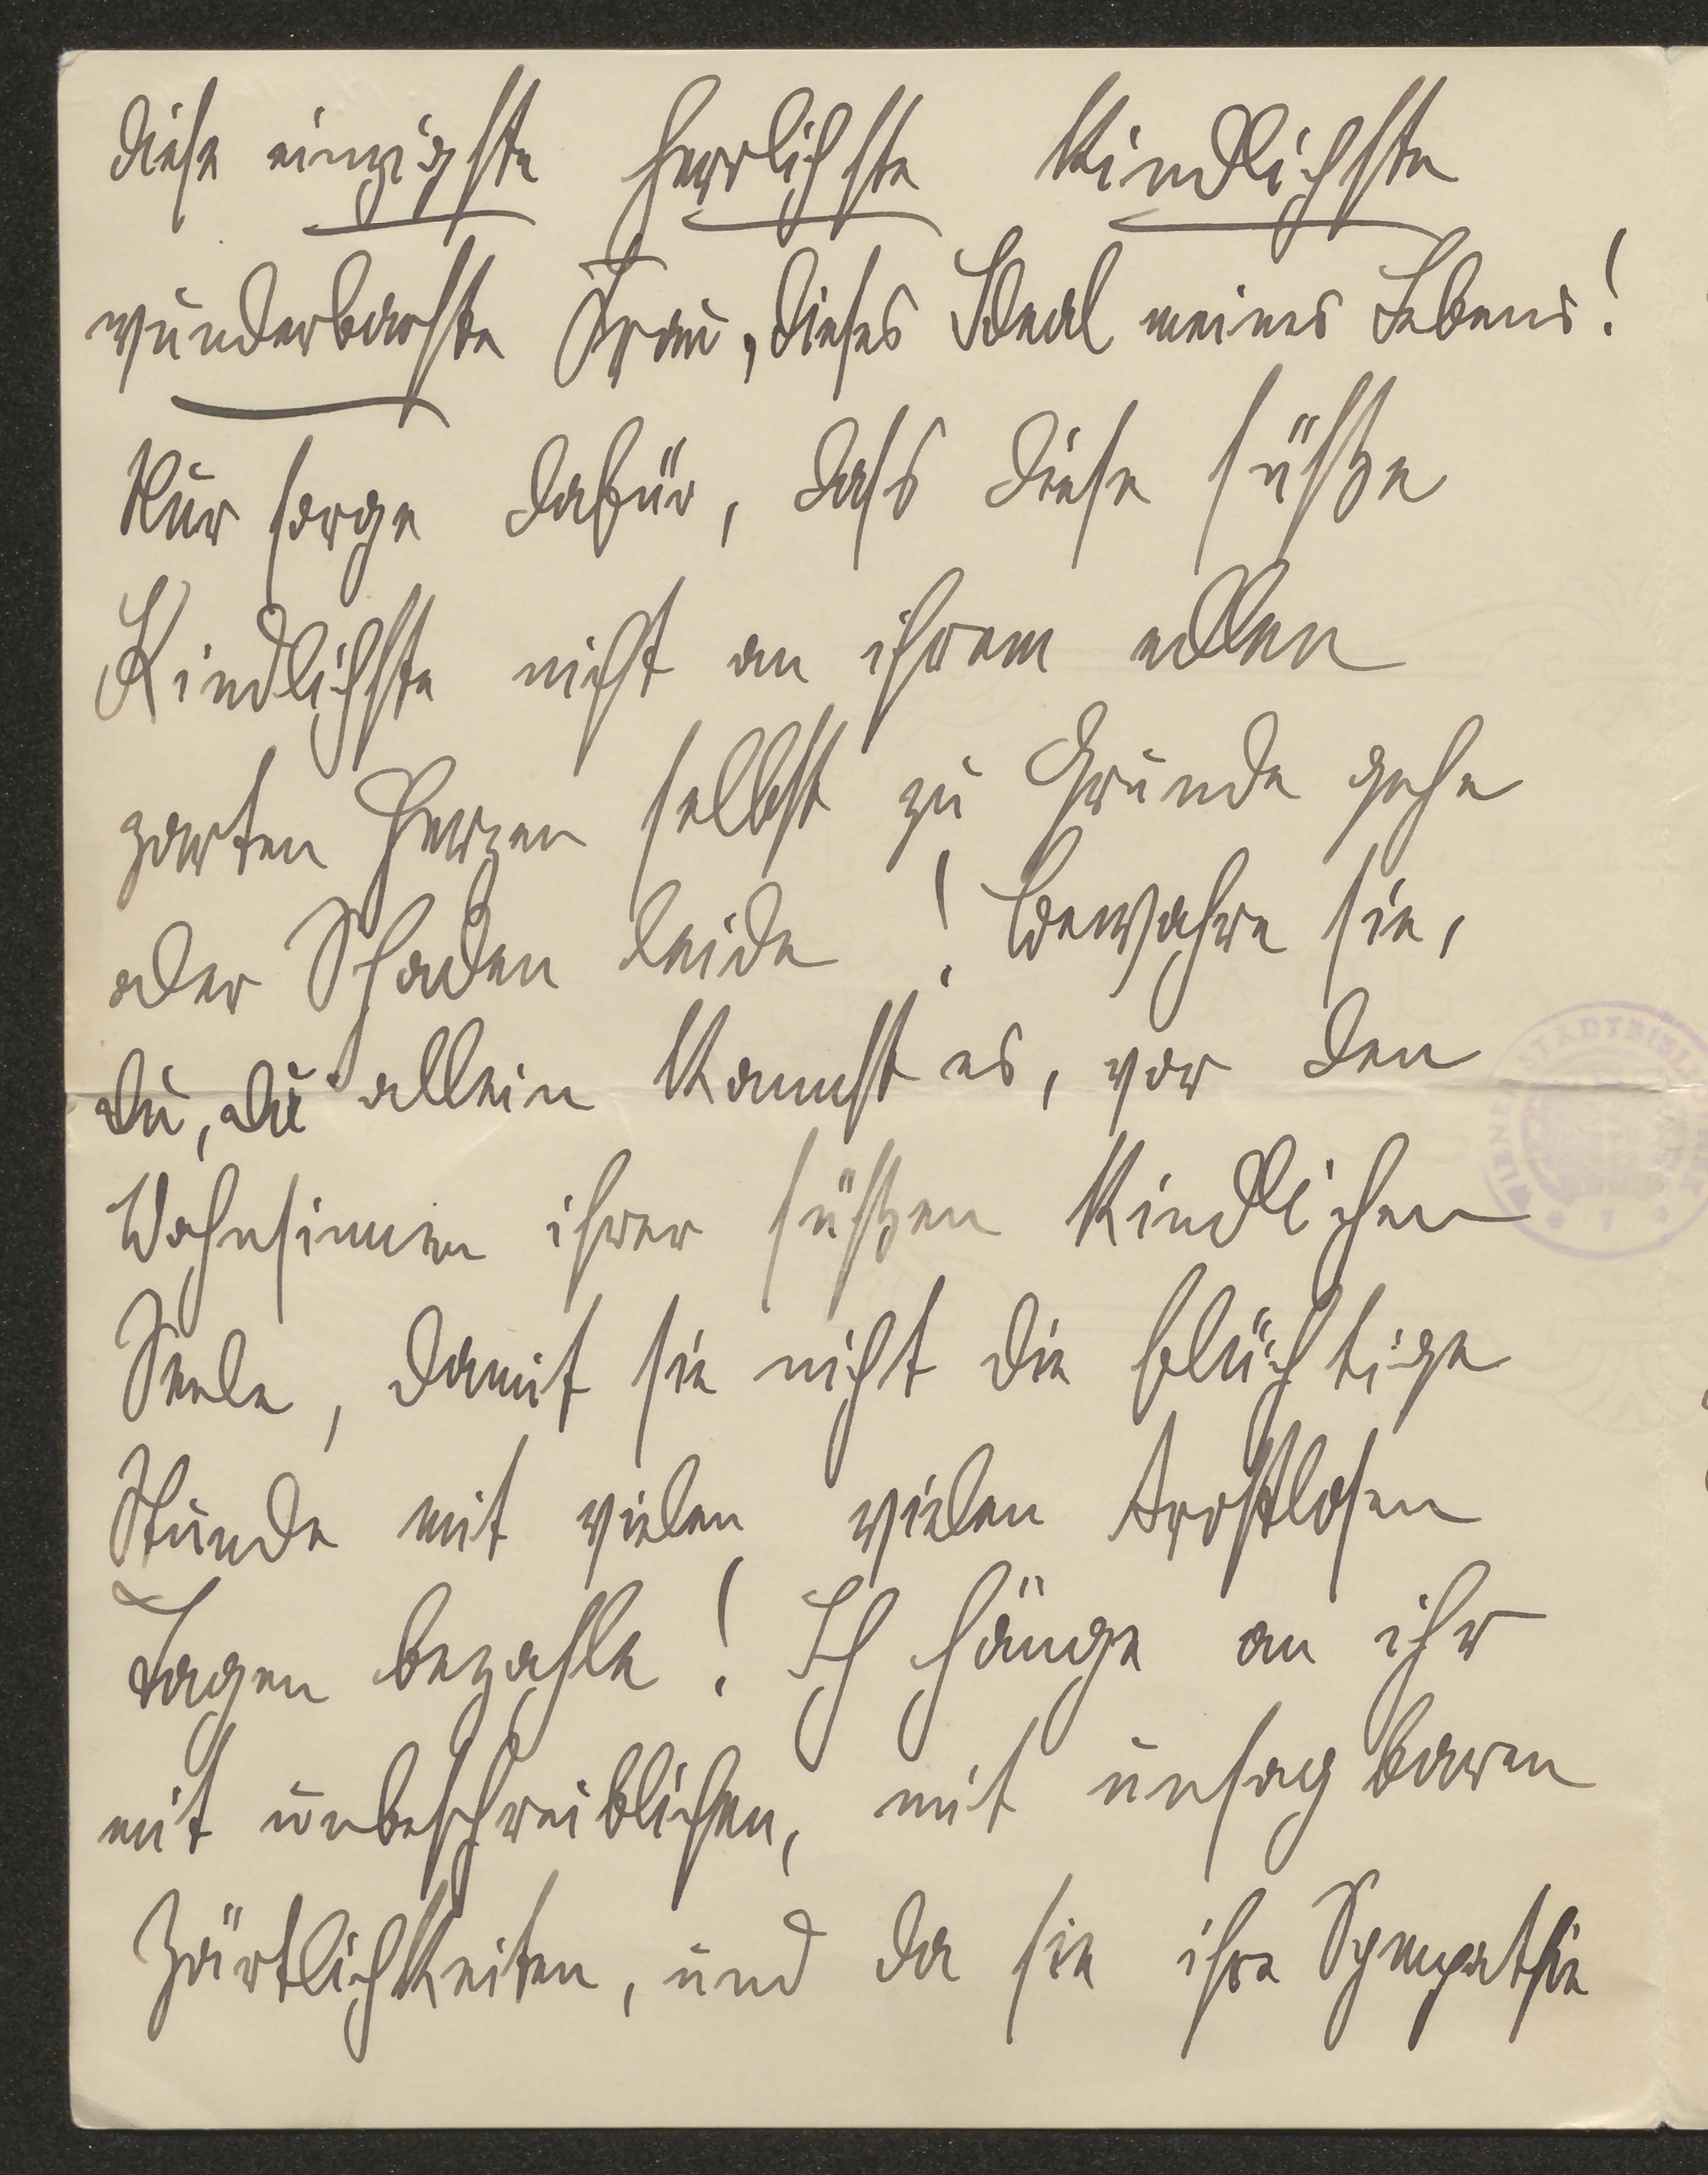 diese einzigste herrlichste kindlichste
wunderbarste Frau, dieses Ideal meines Lebens!
Nur sorge dafür, dass diese süße
Kindlichste nicht an ihrem edlen
zarten Herzen selbst zu Grunde gehe
oder Schaden leide! Bewahre sie,
du, du allein kannst es, vor den
Wahnsinnen ihrer süßen kindlichen
Seele, damit sie nicht die flüchtige
Stunde mit vielen vielen trostlosen
Tagen bezahle! Ich hänge an ihr
mit unbeschreiblichen, mit unsagbaren
Zärtlichkeiten, und da sie ihre Sympathie